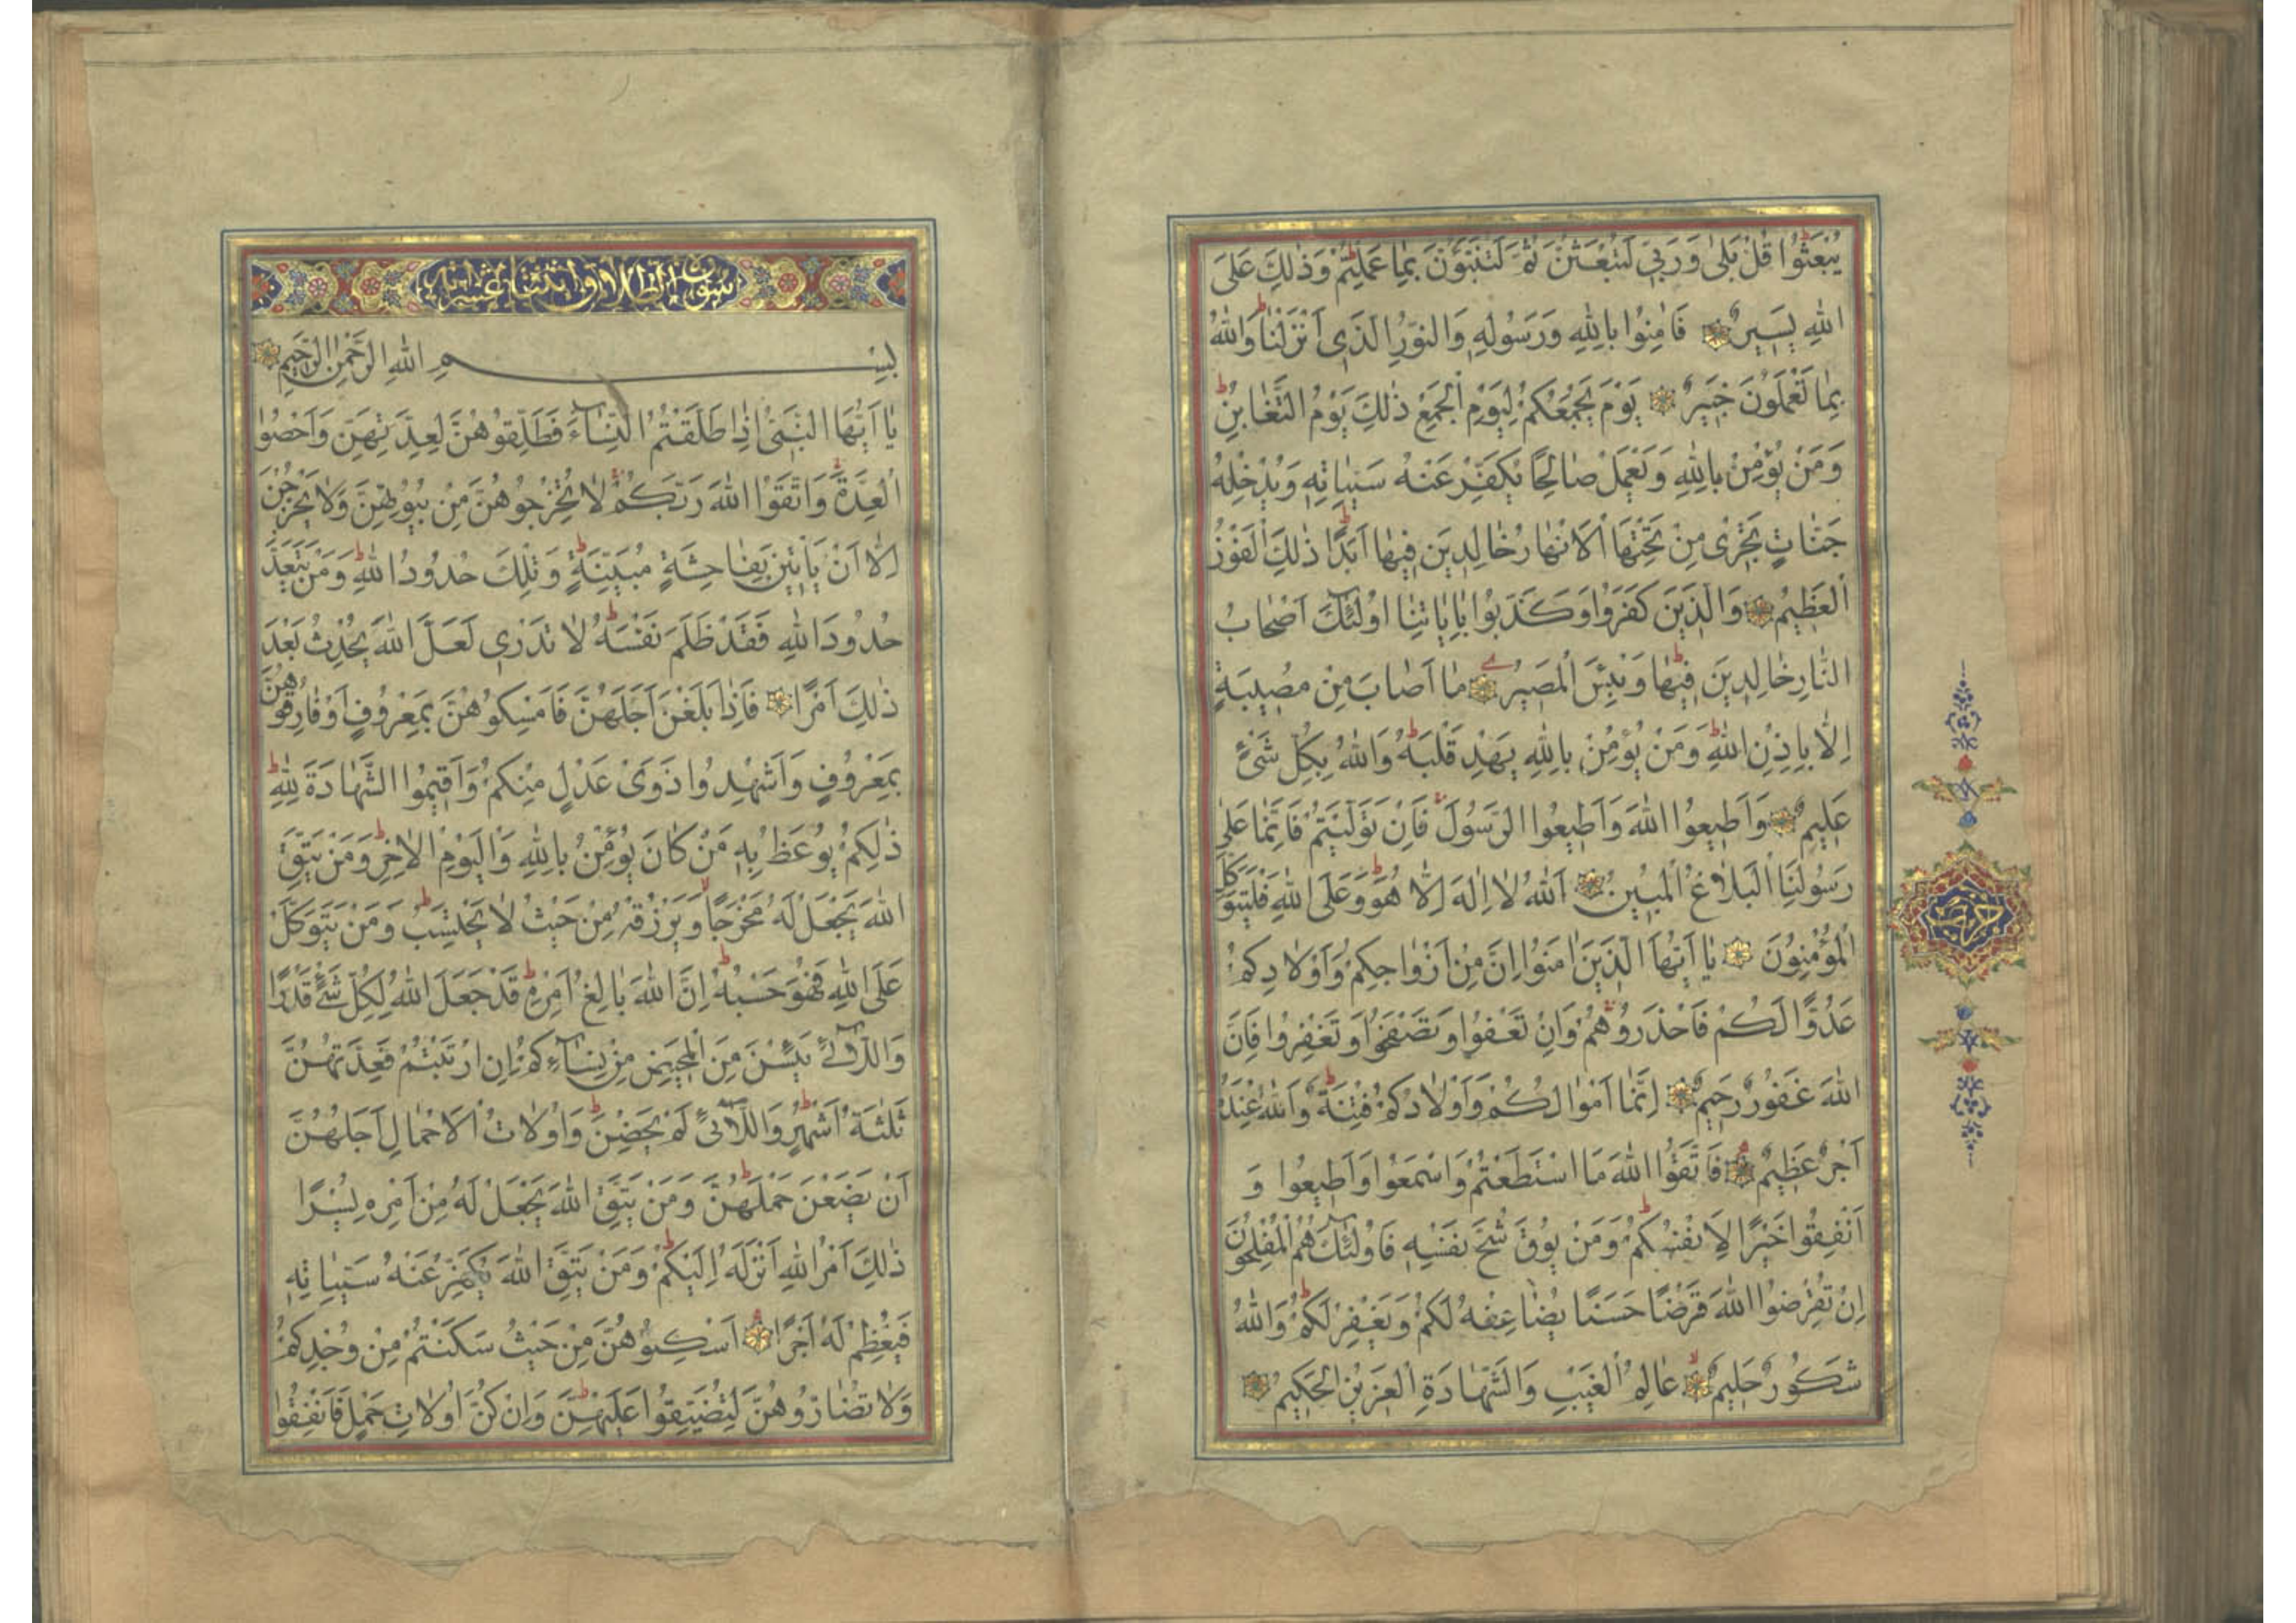 يُبْعَثُوا قُلْ بَلٰى وَرَبِّي لَتُبْعَثُنَّ ثُمَّ لَتُنَبَّؤُنَّ بِمَا عَمِلْتُمْ وَذٰلِكَ عَلَى
اللهِ يَسِيرٌ فَاٰمِنُوا بِاللهِ وَرَسُولِهِ وَالنُّورِ الَّذِي اَنْزَلْنَا وَاللهُ
بِمَا تَعْمَلُونَ خَبِيرٌ يَوْمَ يَجْمَعُكُمْ لِيَوْمِ الْجَمْعِ ذٰلِكَ يَوْمُ التَّغَابُنِ
وَمَنْ يُؤْمِنْ بِاللهِ وَيَعْمَلْ صَالِحًا يُكَفِّرْ عَنْهُ سَيِّاٰتِهِ وَيُدْخِلْهُ
جَنَّاتٍ تَجْرِي مِنْ تَحْتِهَا الْاَنْهَارُ خَالِدِينَ فِيهَا اَبَدًا ذٰلِكَ الْفَوْزُ
الْعَظِيمُ وَالَّذِينَ كَفَرُوا وَكَذَّبُوا بِاٰيَاتِنَا اُولٰئِكَ اَصْحَابُ
النَّارِ خَالِدِينَ فِيهَا وَبِئْسَ الْمَصِيرُ مَا اَصَابَ مِنْ مُصِيبَةٍ
اِلَّا بِاِذْنِ اللهِ وَمَنْ يُؤْمِنْ بِاللهِ يَهْدِ قَلْبَهُ وَاللهُ بِكُلِّ شَيْءٍ
عَلِيمٌ وَاَطِيعُوا اللهَ وَاَطِيعُوا الرَّسُولَ فَاِنْ تَوَلَّيْتُمْ فَاِنَّمَا عَلٰى
رَسُولِنَا الْبَلَاغُ الْمُبِينُ اَللهُ لَا اِلٰهَ اِلَّا هُوَ وَعَلَى اللهِ فَلْيَتَوَكَّلِ
الْمُؤْمِنُونَ يَا اَيُّهَا الَّذِينَ اٰمَنُوا اِنَّ مِنْ اَزْوَاجِكُمْ وَاَوْلَادِكُمْ
عَدُوًّا لَكُمْ فَاحْذَرُوهُمْ وَاِنْ تَعْفُوا وَتَصْفَحُوا وَتَغْفِرُوا فَاِنَّ
اللهَ غَفُورٌ رَحِيمٌ اِنَّمَا اَمْوَالُكُمْ وَاَوْلَادُكُمْ فِتْنَةٌ وَاللهُ عِنْدَهُ
اَجْرٌ عَظِيمٌ فَاتَّقُوا اللهَ مَا اسْتَطَعْتُمْ وَاسْمَعُوا وَاَطِيعُوا وَ
اَنْفِقُوا خَيْرًا لِاَنْفُسِكُمْ وَمَنْ يُوقَ شُحَّ نَفْسِهِ فَاُولٰئِكَ هُمُ الْمُفْلِحُونَ
اِنْ تُقْرِضُوا اللهَ قَرْضًا حَسَنًا يُضَاعِفْهُ لَكُمْ وَيَغْفِرْ لَكُمْ وَاللهُ
شَكُورٌ حَلِيمٌ عَالِمُ الْغَيْبِ وَالشَّهَادَةِ الْعَزِيزُ الْحَكِيمُ
حزب
سورة الطلاق اثنتا عشر اية
بِسْمِ اللهِ الرَّحْمٰنِ الرَّحِيمِ
يَا اَيُّهَا النَّبِيُّ اِذَا طَلَّقْتُمُ النِّسَاءَ فَطَلِّقُوهُنَّ لِعِدَّتِهِنَّ وَاَحْصُوا
الْعِدَّةَ وَاتَّقُوا اللهَ رَبَّكُمْ لَا تُخْرِجُوهُنَّ مِنْ بُيُوتِهِنَّ وَلَا يَخْرُجْنَ
اِلَّا اَنْ يَأْتِينَ بِفَاحِشَةٍ مُبَيِّنَةٍ وَتِلْكَ حُدُودُ اللهِ وَمَنْ يَتَعَدَّ
حُدُودَ اللهِ فَقَدْ ظَلَمَ نَفْسَهُ لَا تَدْرِي لَعَلَّ اللهَ يُحْدِثُ بَعْدَ
ذٰلِكَ اَمْرًا فَاِذَا بَلَغْنَ اَجَلَهُنَّ فَاَمْسِكُوهُنَّ بِمَعْرُوفٍ اَوْ فَارِقُوهُنَّ
بِمَعْرُوفٍ وَاَشْهِدُوا ذَوَيْ عَدْلٍ مِنْكُمْ وَاَقِيمُوا الشَّهَادَةَ لِلّٰهِ
ذٰلِكُمْ يُوعَظُ بِهِ مَنْ كَانَ يُؤْمِنُ بِاللهِ وَالْيَوْمِ الْاٰخِرِ وَمَنْ يَتَّقِ
اللهَ يَجْعَلْ لَهُ مَخْرَجًا وَيَرْزُقْهُ مِنْ حَيْثُ لَا يَحْتَسِبُ وَمَنْ يَتَوَكَّلْ
عَلَى اللهِ فَهُوَ حَسْبُهُ اِنَّ اللهَ بَالِغُ اَمْرِهِ قَدْ جَعَلَ اللهُ لِكُلِّ شَيْءٍ قَدْرًا
وَاللَّائِي يَئِسْنَ مِنَ الْمَحِيضِ مِنْ نِسَائِكُمْ اِنِ ارْتَبْتُمْ فَعِدَّتُهُنَّ
ثَلٰثَةُ اَشْهُرٍ وَاللَّائِي لَمْ يَحِضْنَ وَاُولَاتُ الْاَحْمَالِ اَجَلُهُنَّ
اَنْ يَضَعْنَ حَمْلَهُنَّ وَمَنْ يَتَّقِ اللهَ يَجْعَلْ لَهُ مِنْ اَمْرِهِ يُسْرًا
ذٰلِكَ اَمْرُ اللهِ اَنْزَلَهُ اِلَيْكُمْ وَمَنْ يَتَّقِ اللهَ يُكَفِّرْ عَنْهُ سَيِّاٰتِهِ
وَيُعْظِمْ لَهُ اَجْرًا اَسْكِنُوهُنَّ مِنْ حَيْثُ سَكَنْتُمْ مِنْ وُجْدِكُمْ
وَلَا تُضَارُّوهُنَّ لِتُضَيِّقُوا عَلَيْهِنَّ وَاِنْ كُنَّ اُولَاتِ حَمْلٍ فَاَنْفِقُوا